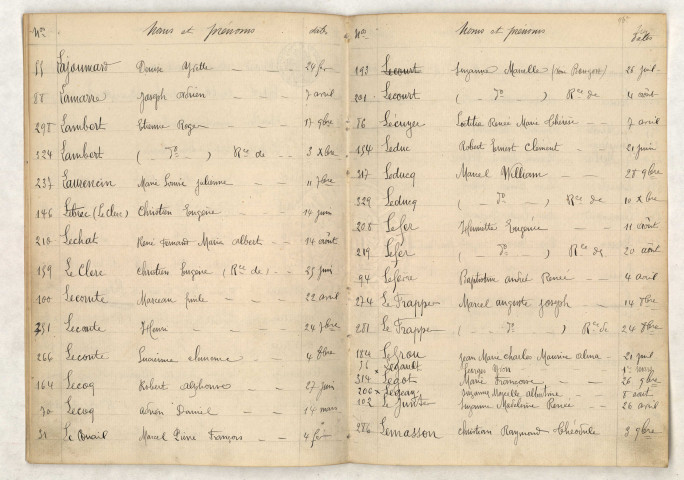 Nos Noms et prénoms dates
55 Lajoumard Denise Yvette - - 24 fr
88 Lamarre Joseph Adrien - - 7 avril
298 Lambert Etienne Roger - - 17 9bre
324 Lambert ( - do - ) Rce de - - 3 Xbre
237 Laurencin Marie Louise Julienne - - 11 7bre
146 Lebrec (Leclerc) Christian Eugène - - 14 juin
210 Lechat René Fernand Marie Albert - - 14 août
159 Le Clerc Christian Eugène (Rce de) - - 25 juin
100 Lecomte Marceau - - 22 avril
251 Lecomte Henri - - 24 7bre
266 Lecomte Lucienne Clémence - - 4 8bre
164 Lecoq Robert Alphonse - - 27 juin
70 Lecoq Adrien Daniel - - 14 mars
31 Marcel Pierre François - 4 fr
Nos Noms et prénoms Dates
193 Lecourt Suzanne Marcelle 26 juil.
201 Lecourt ( - do - ) Rce de 4 août
86 Lécuyer Laëtitia Renée Marie Thérèse - - 7 avril
154 Leduc Robert Ernest Clément - - 21 juin
317 Leducq Marcel William - - 28 9bre
329 Leducq ( - do - ) Rce de 10 Xbre
208 Lefer Henriette Eugénie - - 11 août
219 Lefer ( - do - ) Rce de 20 août
94 Lefèvre Baptistine André Renée - - 4 avril
274 Le Frapper Marcel Auguste Joseph - - 14 8bre
281 Le Frapper ( - do - ) Rce de - 24 8bre
184 Jean Marie Charles Maurice - 21 juil
76 x Legault Georges 1er
314 Legot Marie Françoise - - 26 9bre
206 x Lejean Suzanne Marcelle Albertine - - 8 août
102 Le Juste Suzanne Madeleine Renée - - 26 avril
286 Lemasson Christian Raymond Théodule - 3 9bre